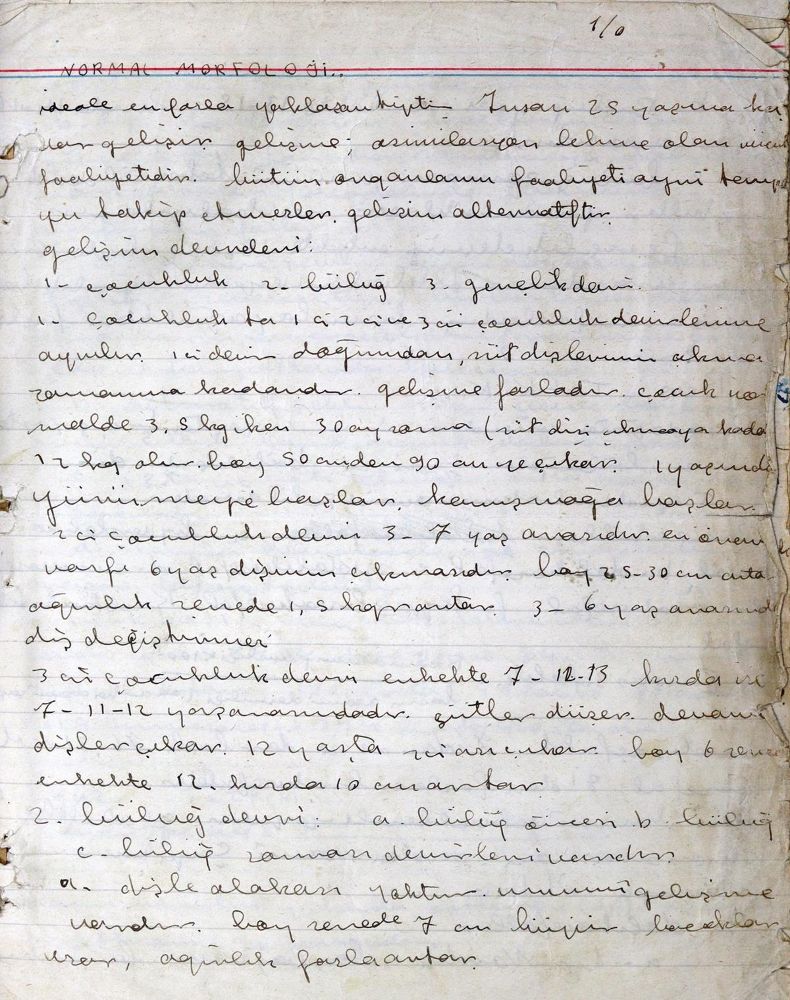 1/0
NORMAL MORFOLOJİ..
ideale en fazla yaklaşan tiptir İnsan 25 yaşına ka
dar gelişir gelişme; asimilasyon lehine olan vücut
faaliyetidir. bütün organların faaliyeti aynı tempo
yu takip etmezler. gelişim alternatiftir.
gelişim devreleri:
1- çocukluk 2- büluğ 3- gençlik devri.
1- çocukluk ta 1 ci 2 ci ve 3 cü çocukluk devirlerine
ayrılır. 1 ci devir doğumdan, süt dişlerinin çıkma
zamanına kadardır. gelişme fazladır. çocuk nor
malde 3,5 kg iken 30 ay sonra (süt dişi çıkmaya kada
12 kg olur. boy 50 cm den 90 cm ye çıkar. 1 yaşında
yürümeye başlar. konuşmağa başlar.
2 ci çocukluk devri 3-7 yaş arasıdır. en önem
vasfı 6 yaş dişinin çıkmasıdır. boy 25-30 cm arta
ağırlık senede 1,5 kgr artar. 3-6 yaş arasında
diş değiştirmez
3 cü çocukluk devri erkekte 7-12-13 kızda ise
7-11-12 yaş arasındadır. sütler düşer. devamlı
dişler çıkar. 12 yaşta 2 ci azı çıkar. boy 6 sene
erkekte 12. kızda 10 cm artar
2. büluğ devri: a. büluğ öncesi b. büluğ
c- büluğ sonrası devirleri vardır.
a. dişle alakası yoktur. umumi gelişme
vardır. boy senede 7 cm büyür bacaklar
uzar, ağırlık fazla artar.